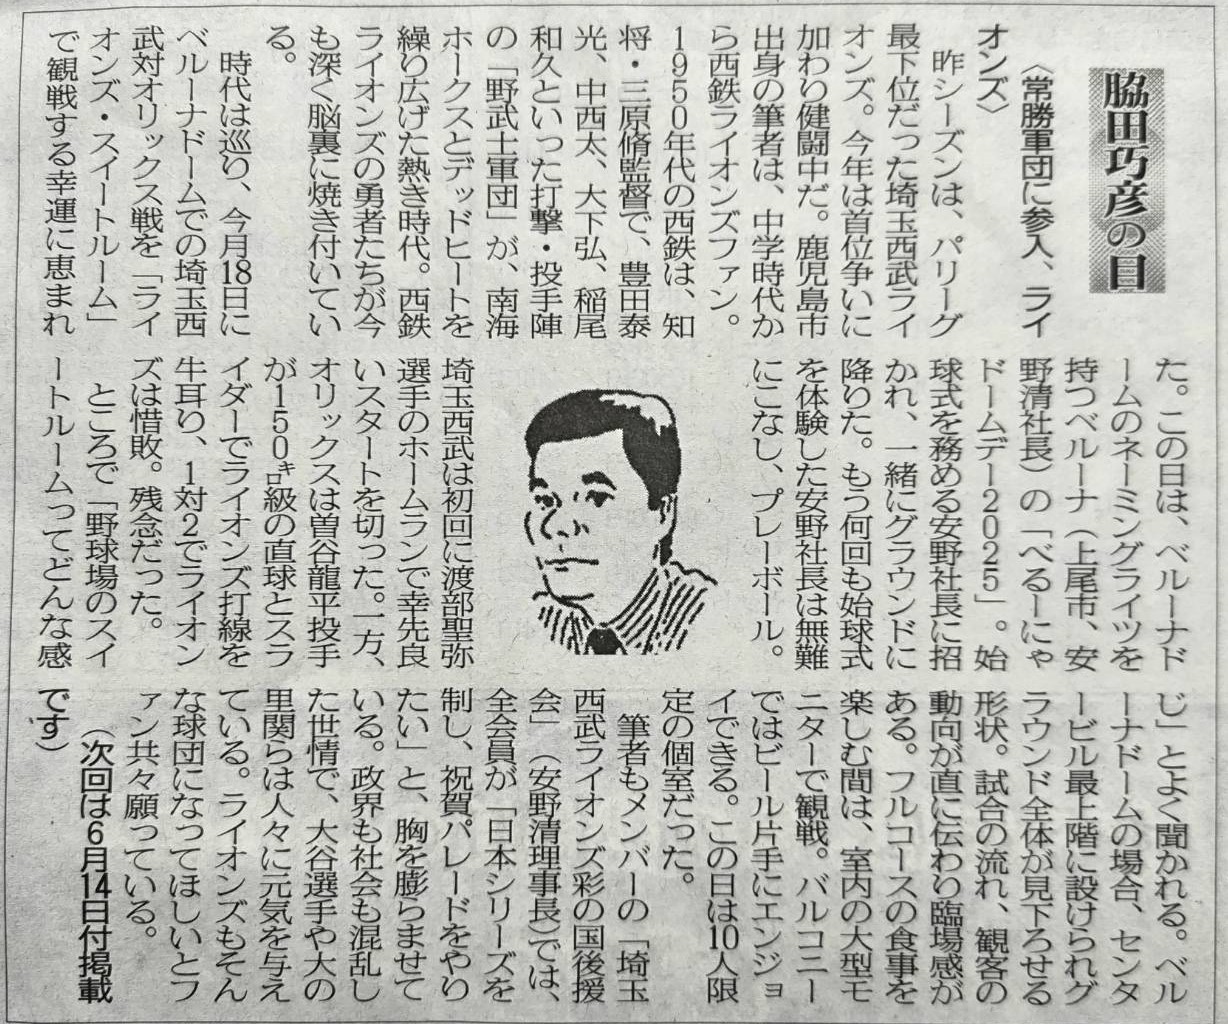 脇田巧彦の目
〈常勝軍団に参入、ライ
オンズ〉
昨シーズンは、パリーグ
最下位だった埼玉西武ライ
オンズ。今年は首位争いに
加わり健闘中だ。鹿児島市
出身の筆者は、中学時代か
ら西鉄ライオンズファン。
1950年代の西鉄は、知
将・三原脩監督で、豊田泰
光、中西太、大下弘、稲尾
和久といった打撃・投手陣
の「野武士軍団」が、南海
ホークスとデッドヒートを
繰り広げた熱き時代。西鉄
ライオンズの勇者たちが今
も深く脳裏に焼き付いてい
る。
時代は巡り、今月18日に
ベルーナドームでの埼玉西
武対オリックス戦を「ライ
オンズ・スイートルーム」
で観戦する幸運に恵まれ
た。この日は、ベルーナド
ームのネーミングライツを
持つベルーナ（上尾市、安
野清社長）の「べるーにゃ
ドームデー2025」。始
球式を務める安野社長に招
かれ、一緒にグラウンドに
降りた。もう何回も始球式
を体験した安野社長は無難
にこなし、プレーボール。
埼玉西武は初回に渡部聖弥
選手のホームランで幸先良
いスタートを切った。一方、
オリックスは曽谷龍平投手
が150㌔級の直球とスラ
イダーでライオンズ打線を
牛耳り、1対2でライオン
ズは惜敗。残念だった。
ところで「野球場のスイ
ートルームってどんな感
じ」とよく聞かれる。ベル
ーナドームの場合、センタ
ービル最上階に設けられグ
ラウンド全体が見下ろせる
形状。試合の流れ、観客の
動向が直に伝わり臨場感が
ある。フルコースの食事を
楽しむ間は、室内の大型モ
ニターで観戦。バルコニー
ではビール片手にエンジョ
イできる。この日は10人限
定の個室だった。
筆者もメンバーの「埼玉
西武ライオンズ彩の国後援
会」（安野清理事長）では、
全会員が「日本シリーズを
制し、祝賀パレードをやり
たい」と、胸を膨らませて
いる。政界も社会も混乱し
た世情で、大谷選手や大の
里関らは人々に元気を与え
ている。ライオンズもそん
な球団になってほしいとフ
ァン共々願っている。
（次回は6月14日付掲載
です）